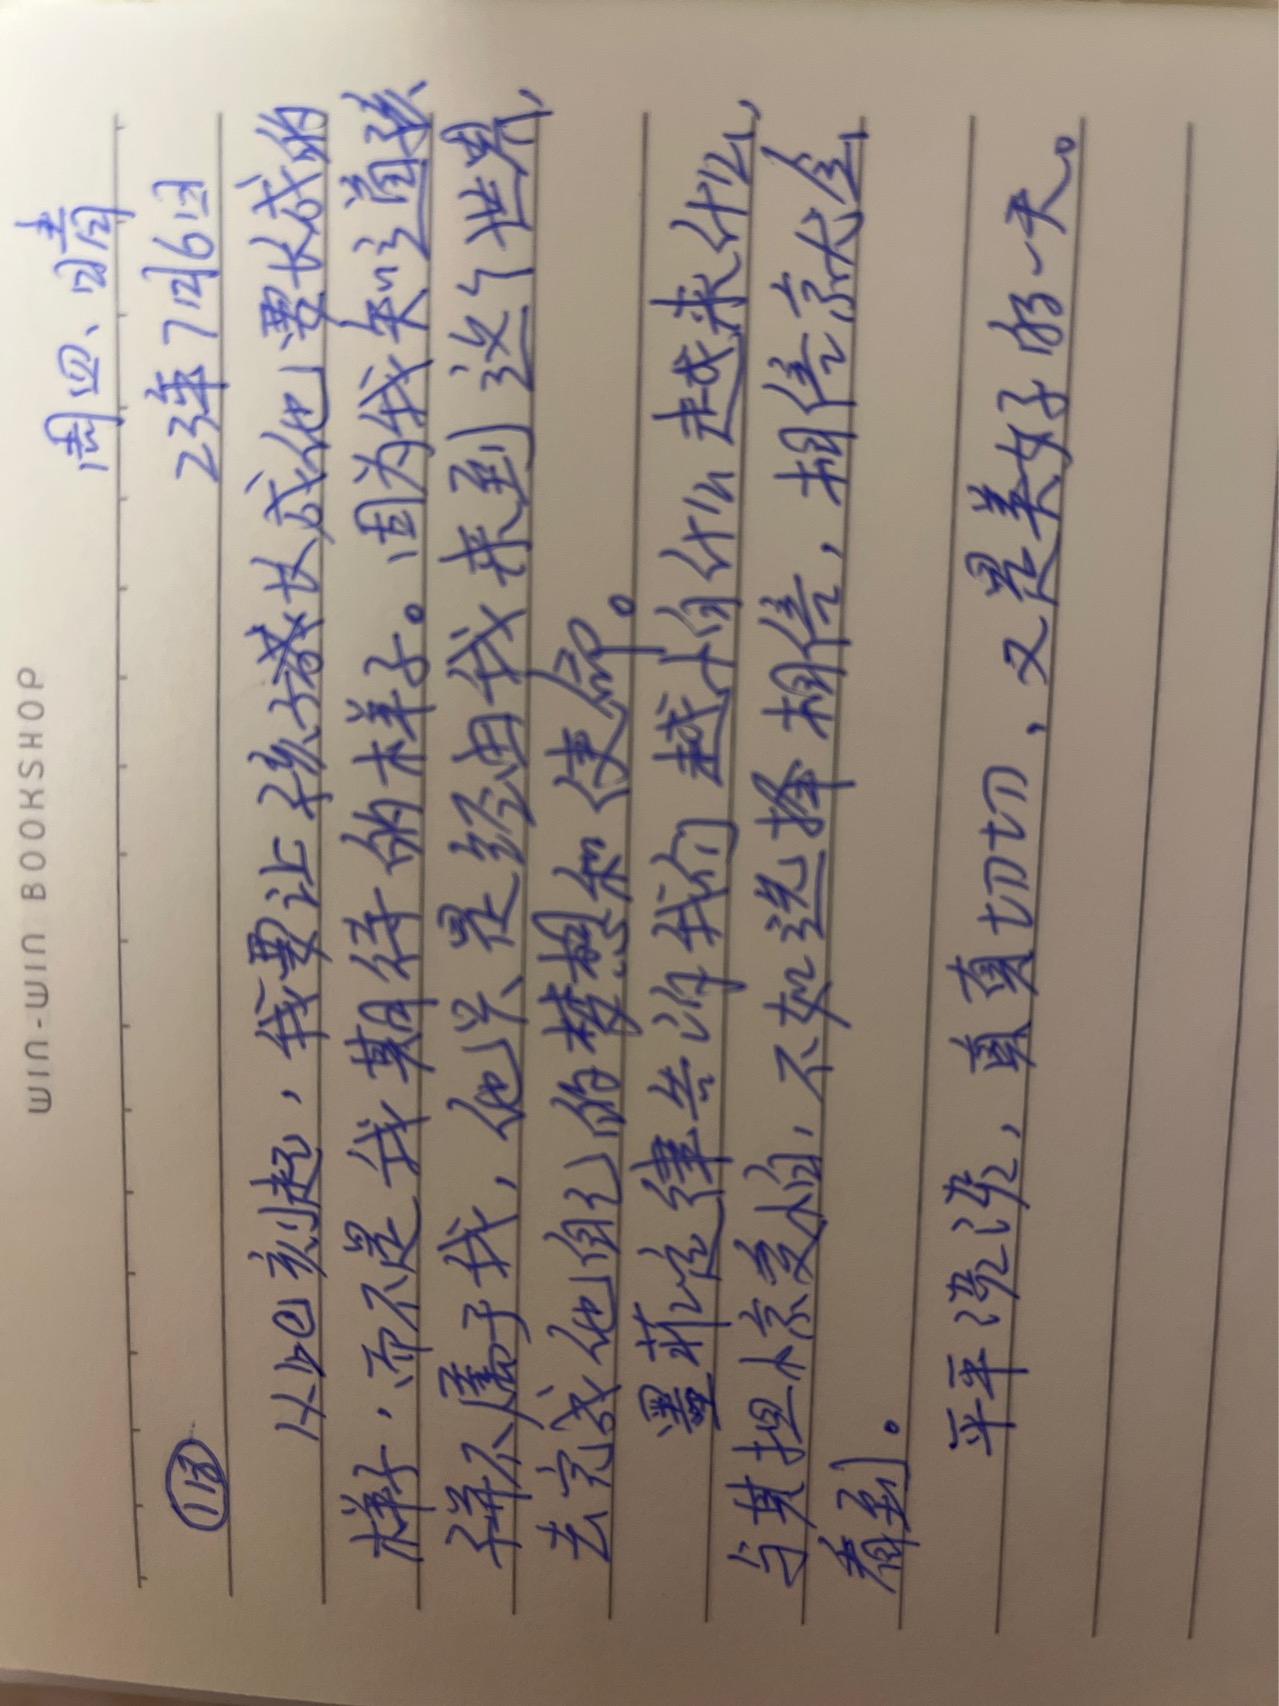 WIN-WIN BOOKSHOP
周四、晴
23年7月6日
113
从此刻起，我要让孩子成长成他要长成的
样子，而不是我期待的样子。因为我知道孩
子并不属于我，他只是经由我来到这个世界，
去完成他自己的梦想和使命。
墨菲定律告诉我们越怕什么越来什么，
与其担惊受怕，不如选择相信，相信就会
看到。
平平淡淡，真真切切，又是美好的一天。